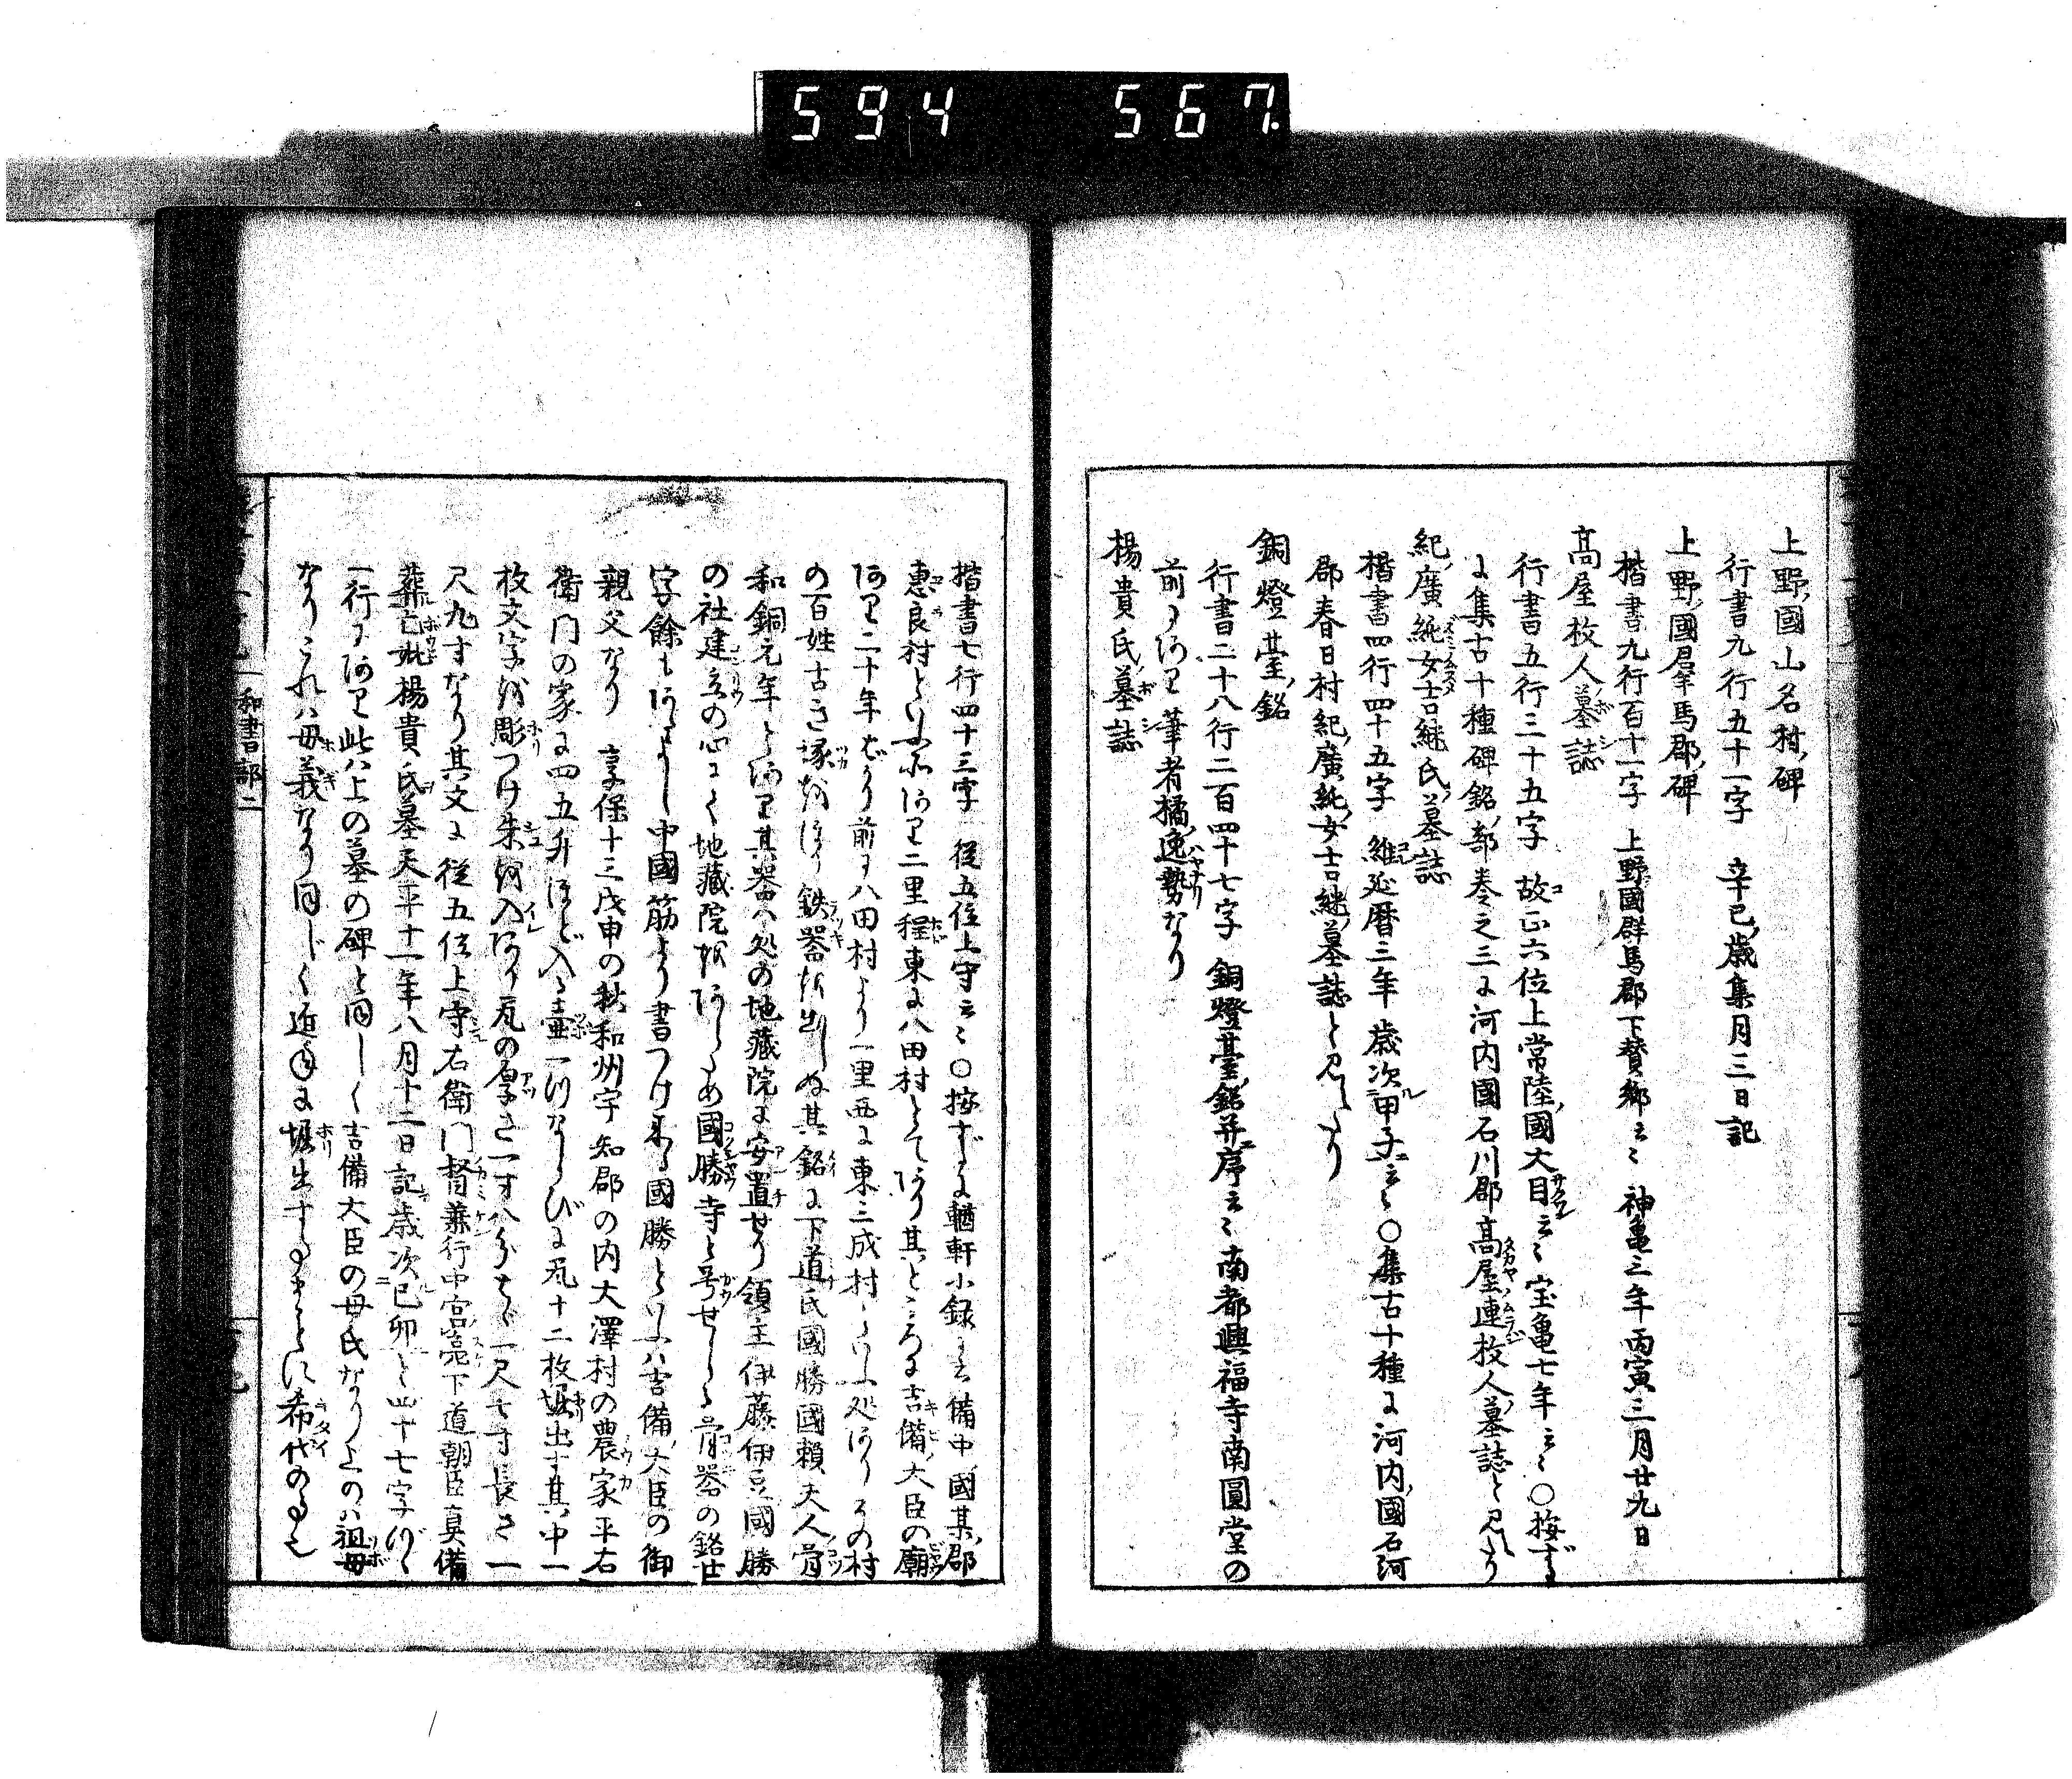 594 567
上野國山名村碑
行書九行五十一字 辛巳歳集月三日記
上野國羣馬郡碑
楷書九行百十一字 上野國群馬郡下賛郷云〻 神亀三年丙寅三月廿九日
高屋枚人墓誌
行書五行三十五字 故正六位上常陸國大目云〻宝亀七年云〻○按ずる
に集古十種碑銘部巻之三に河内國石川郡高屋連枚人墓誌と見えたり
紀廣純女吉継氏墓誌
楷書四行四十五字 維延暦三年歳次甲子云〻○集古十種に河内國石河
郡春日村紀廣純女吉継墓誌と見えたり
銅燈臺銘
行書二十八行二百四十七字 銅燈臺銘并序云〻南都興福寺南圓堂の
前にあり筆者橘逸勢なり
楊貴氏墓誌
楷書七行四十三字 從五位上守云〻○按ずるに輶軒小録に云備中國某郡
惠良村といふ所あり二里程東に八田村とてあり其ところに吉備大臣の廟
あり二十年ばかり前に八田村より一里西に東三成村といふ処ありその村
の百姓古き塚をほり鉄器を出しぬ其銘に下道氏國勝國頼夫人骨
和銅元年とあり其器は処の地藏院に安置せり領主伊藤伊豆國勝
の社建立の心にて地藏院をあらため國勝寺と号せしむ骨器の銘廿
字餘もあるよし中國筋より書つけ来る國勝といふは吉備大臣の御
親父なり 享保十三戊申の秋和州宇知郡の内大澤村の農家平右
衛門の家に四五升ほど入る壷一つならびに瓦十二枚堀出す其中一
枚文字を彫つけ朱を入あり瓦の厚さ一寸八分はゞ一尺七寸長さ一
尺九寸なり其文に從五位上守右衛門督兼行中宮亮下道朝臣真備
葬亡妣楊貴氏墓天平十一年八月十二日記歳次己卯と四十七字づゝ
一行にあり此は上の墓の碑と同しく吉備大臣の母氏なり上のは祖母
なりこれは母義なり同しく近年に堀出すことまことに希代のこと也
和書部二